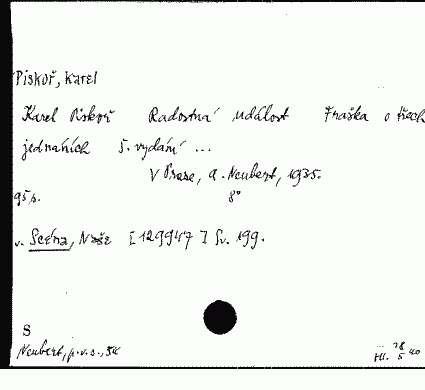 Piskoř, Karel
Karel Piskoř Radostná událost Fraška o třech
jednáních 5. vydání ...
V Praze, A. Neubert, 1935.
95 s. 8°
v. Scéna, Naše [129947] Sv. 199.
S
Neubert, p.v.s., 54